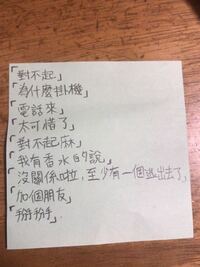 「對不起」
「為什麼掛機」
「電話來」
「太可惜了」
「對不起麻」
「我有香水的說」
「沒關係啦,至少有一個逃出去了」
「加個朋友」
「掰掰」